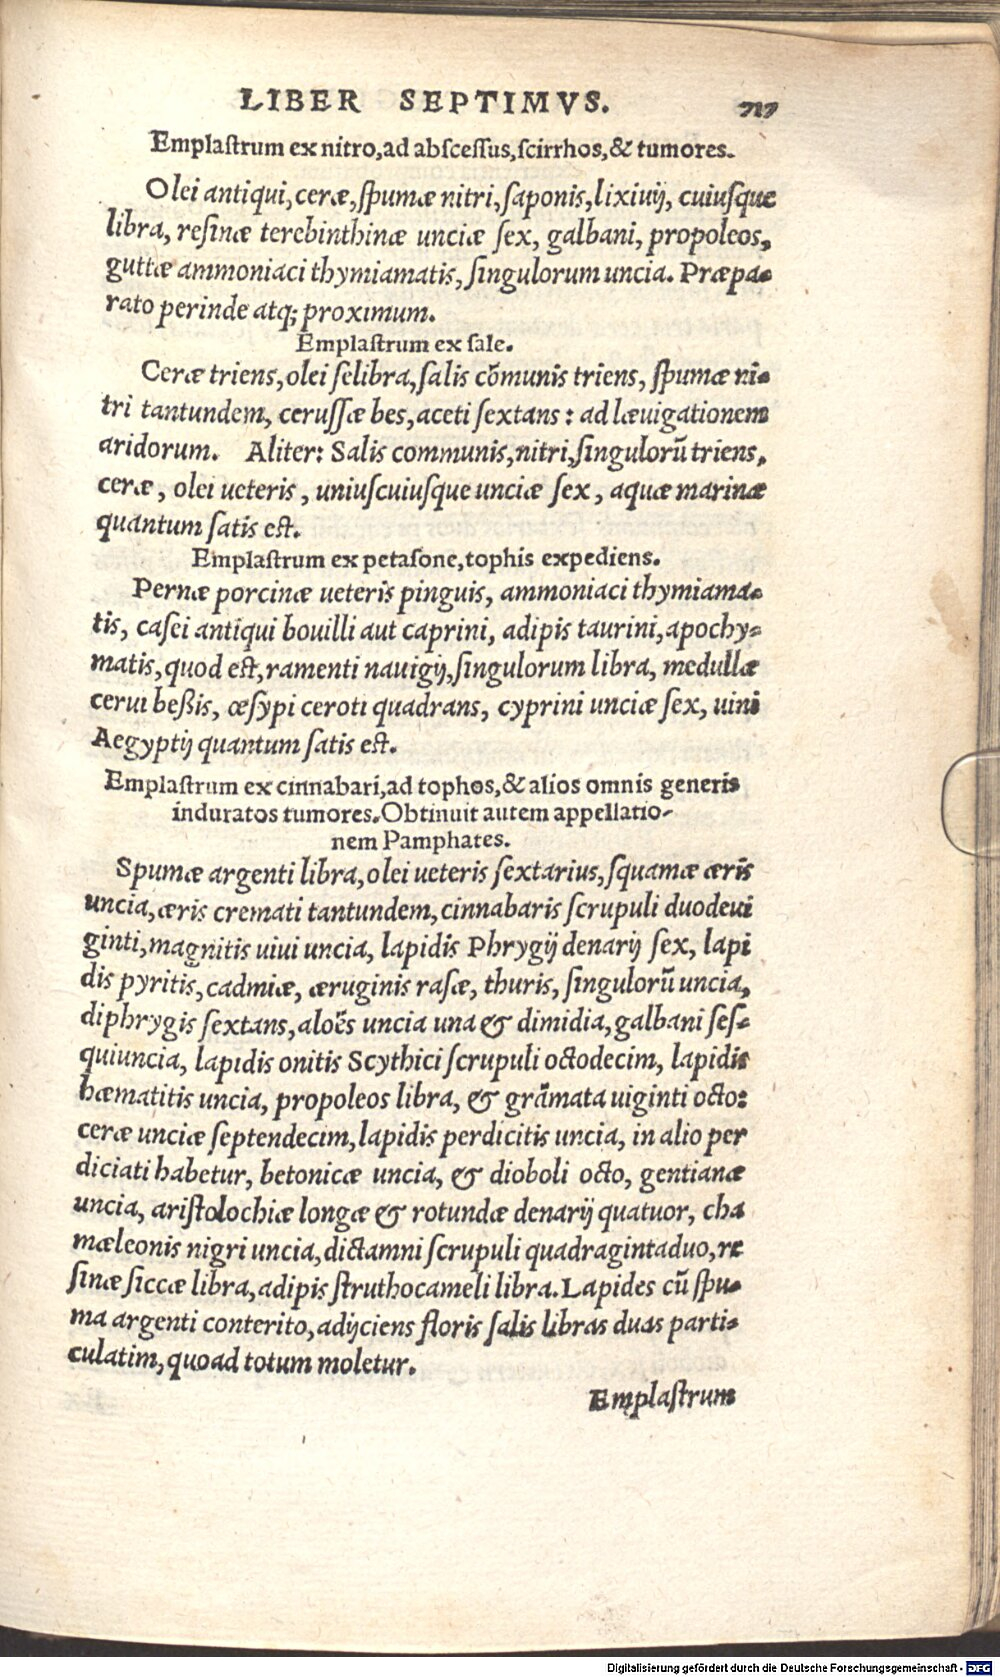 LIBER SEPTIMVS. 717
Emplastrum ex nitro, ad abscessus, scirrhos, & tumores.
Olei antiqui, ceræ, spumæ nitri, saponis, lixiuij, cuiusque
libra, resinæ terebinthinæ unciæ sex, galbani, propoleos,
guttæ ammoniaci thymiamatis, singulorum uncia. Præpa-
rato perinde atq; proximum.
Emplastrum ex sale.
Ceræ triens, olei selibra, salis cōmunis triens, spumæ ni-
tri tantundem, cerussæ bes, aceti sextans: ad læuigationem
aridorum. Aliter: Salis communis, nitri, singulorū triens,
ceræ, olei ueteris, uniuscuiusque unciæ sex, aquæ marinæ
quantum satis est.
Emplastrum ex petasone, tophis expediens.
Pernæ porcinæ ueteris pinguis, ammoniaci thymiama-
tis, casei antiqui bouilli aut caprini, adipis taurini, apochy-
matis, quod est, ramenti nauigij, singulorum libra, medullæ
cerui beßis, œsypi ceroti quadrans, cyprini unciæ sex, uini
Aegyptij quantum satis est.
Emplastrum ex cinnabari, ad tophos, & alios omnis generis
induratos tumores. Obtinuit autem appellatio-
nem Pamphates.
Spumæ argenti libra, olei ueteris sextarius, squamæ æris
uncia, æris cremati tantundem, cinnabaris scrupuli duodeui
ginti, magnitis uiui uncia, lapidis Phrygij denarij sex, lapi
dis pyritis, cadmiæ, æruginis rasæ, thuris, singulorū uncia,
diphrygis sextans, aloës uncia una & dimidia, galbani ses-
quiuncia, lapidis onitis Scythici scrupuli octodecim, lapidis
hæmatitis uncia, propoleos libra, & grāmata uiginti octo:
ceræ unciæ septendecim, lapidis perdicitis uncia, in alio per
diciati habetur, betonicæ uncia, & dioboli octo, gentianæ
uncia, aristolochiæ longæ & rotundæ denarij quatuor, cha
mæleonis nigri uncia, dictamni scrupuli quadragintaduo, re
sinæ siccæ libra, adipis struthocameli libra. Lapides cū spu-
ma argenti conterito, adijciens floris salis libras duas parti-
culatim, quoad totum moletur.
Emplastrum
Digitalisierung gefördert durch die Deutsche Forschungsgemeinschaft - DFG